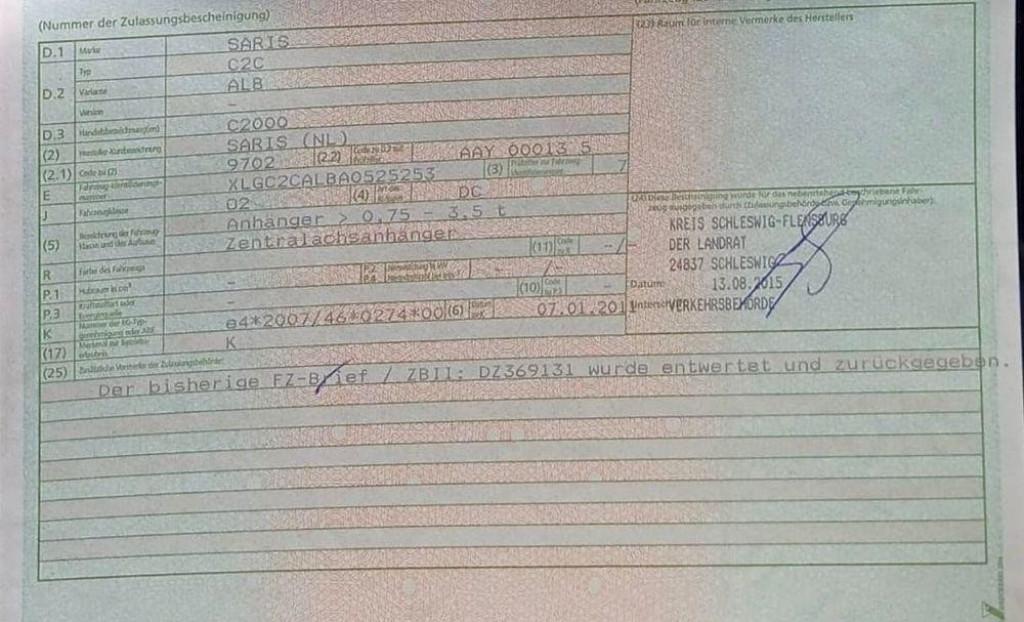 (Nummer der Zulassungsbescheinigung)
D.1 Marke SARIS
D.2 Typ C2C
Variante ALB
Version -
D.3 Handelsbezeichnung(en) C2000
(2) Hersteller-Kurzbezeichnung SARIS (NL)
(2.1) Code zu (2) 9702 (2.2) AAY 00013 5
E Fahrzeug-Identifizierungsnummer XLGC2CALBA0525253 (3) 7
J Fahrzeugklasse 02 (4) DC
(5) Bezeichnung der Fahrzeugklasse und des Aufbaus Anhänger > 0,75 - 3,5 t
Zentralachsanhänger
R Farbe des Fahrzeugs (11) Code -/-
P.1 Hubraum in cm³ - P.2 P.4 - /-
P.3 Kraftstoffart oder Energiequelle - (10) Code -
K Nummer der EG-Typgenehmigung oder ABE e4*2007/46*0274*00 (6) Datum 07.01.2011
(17) K
(25) Zusätzliche Vermerke der Zulassungsbehörde:
Der bisherige FZ-Brief / ZBII: DZ369131 wurde entwertet und zurückgegeben.
(23) Raum für interne Vermerke des Herstellers
(24) Diese Bescheinigung wurde für das nebenstehend beschriebene Fahr-
zeug ausgegeben durch (Zulassungsbehörde bzw. Genehmigungsinhaber):
KREIS SCHLESWIG-FLENSBURG
DER LANDRAT
24837 SCHLESWIG
Datum: 13.08.2015
VERKEHRSBEHÖRDE